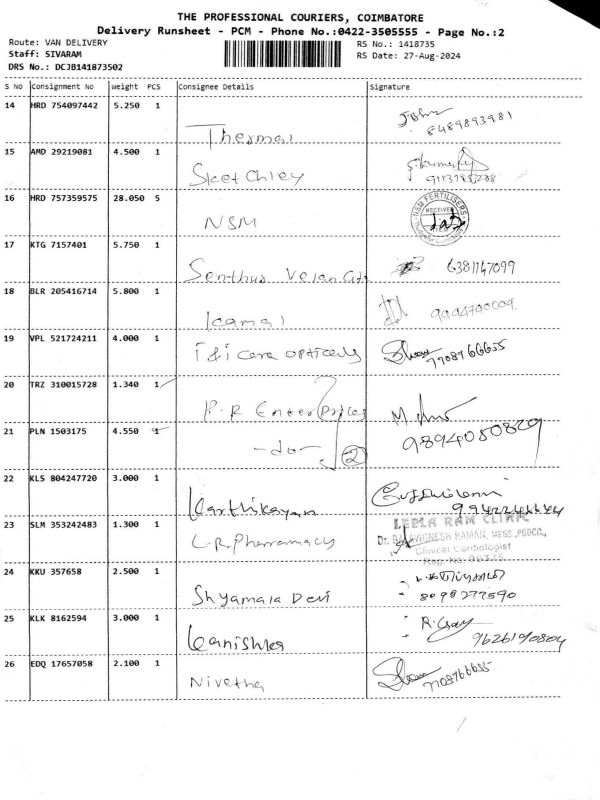 THE PROFESSIONAL COURIERS, COIMBATORE
Delivery Runsheet - PCM - Phone No.:0422-3505555 - Page No.:2
Route: VAN DELIVERY RS No.: 1418735
Staff: SIVARAM RS Date: 27-Aug-2024
DRS No.: DCJB141873502
S No Consignment No Weight PCS Consignee Details Signature
14 HRD 754097442 5.250 1
Thermal 8489893981
15 AMD 29219081 4.500 1
Sket Chley
16 HRD 757359575 28.050 5
NSM NSM FERTILISERS RECEIVED
17 KTG 7157401 5.750 1
Senthur Velan 6381147099
18 BLR 205416714 5.800 1
kamal
19 VPL 521724211 4.000 1
i & i care opticals 7708766655
20 TRZ 310015728 1.340 1
P.R Enterprices
21 PLN 1503175 4.550 1
-do- 2 9894050829
22 KLS 804247720 3.000 1
Karthikayan
23 SLM 353242483 1.300 1
L.R. Pharramacys LEELA RAM CLINIC
Clinical Cardiologist
24 KKU 357658 2.500 1
Shyamala Devi 8098277590
25 KLK 8162594 3.000 1
Kanishka 9626190804
26 EDQ 17657058 2.100 1
Nivetha 7708766655